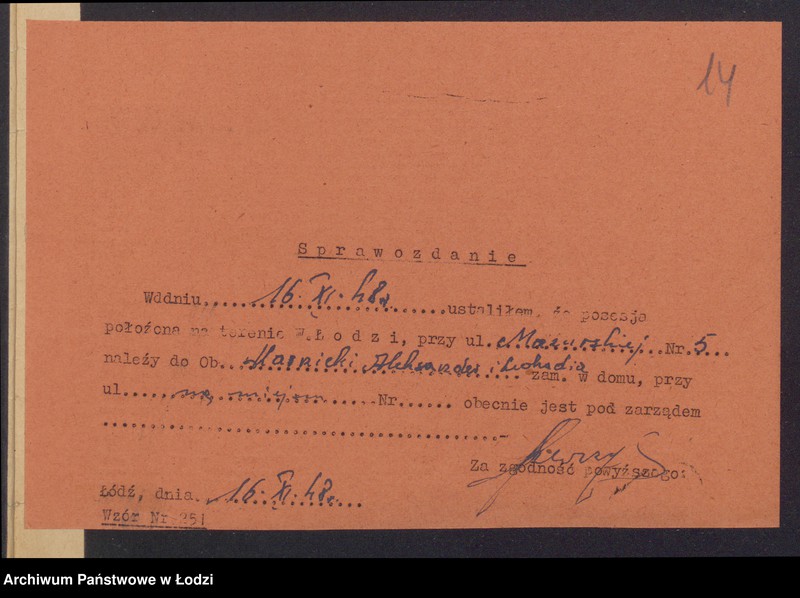 14
Sprawozdanie
Wddniu 16. XI. 48r. ustaliłem, że posesja
położona na terenie w. Łodzi, przy ul. Mazurskiej Nr. 5
należy do Ob. Aleksander i zam. w domu, przy
ul. na miejscu Nr. obecnie jest pod zarządem
Za zgodność powyższego:
Łódź, dnia 16. XI. 48r.
Wzór Nr 251
Archiwum Państwowe w Łodzi